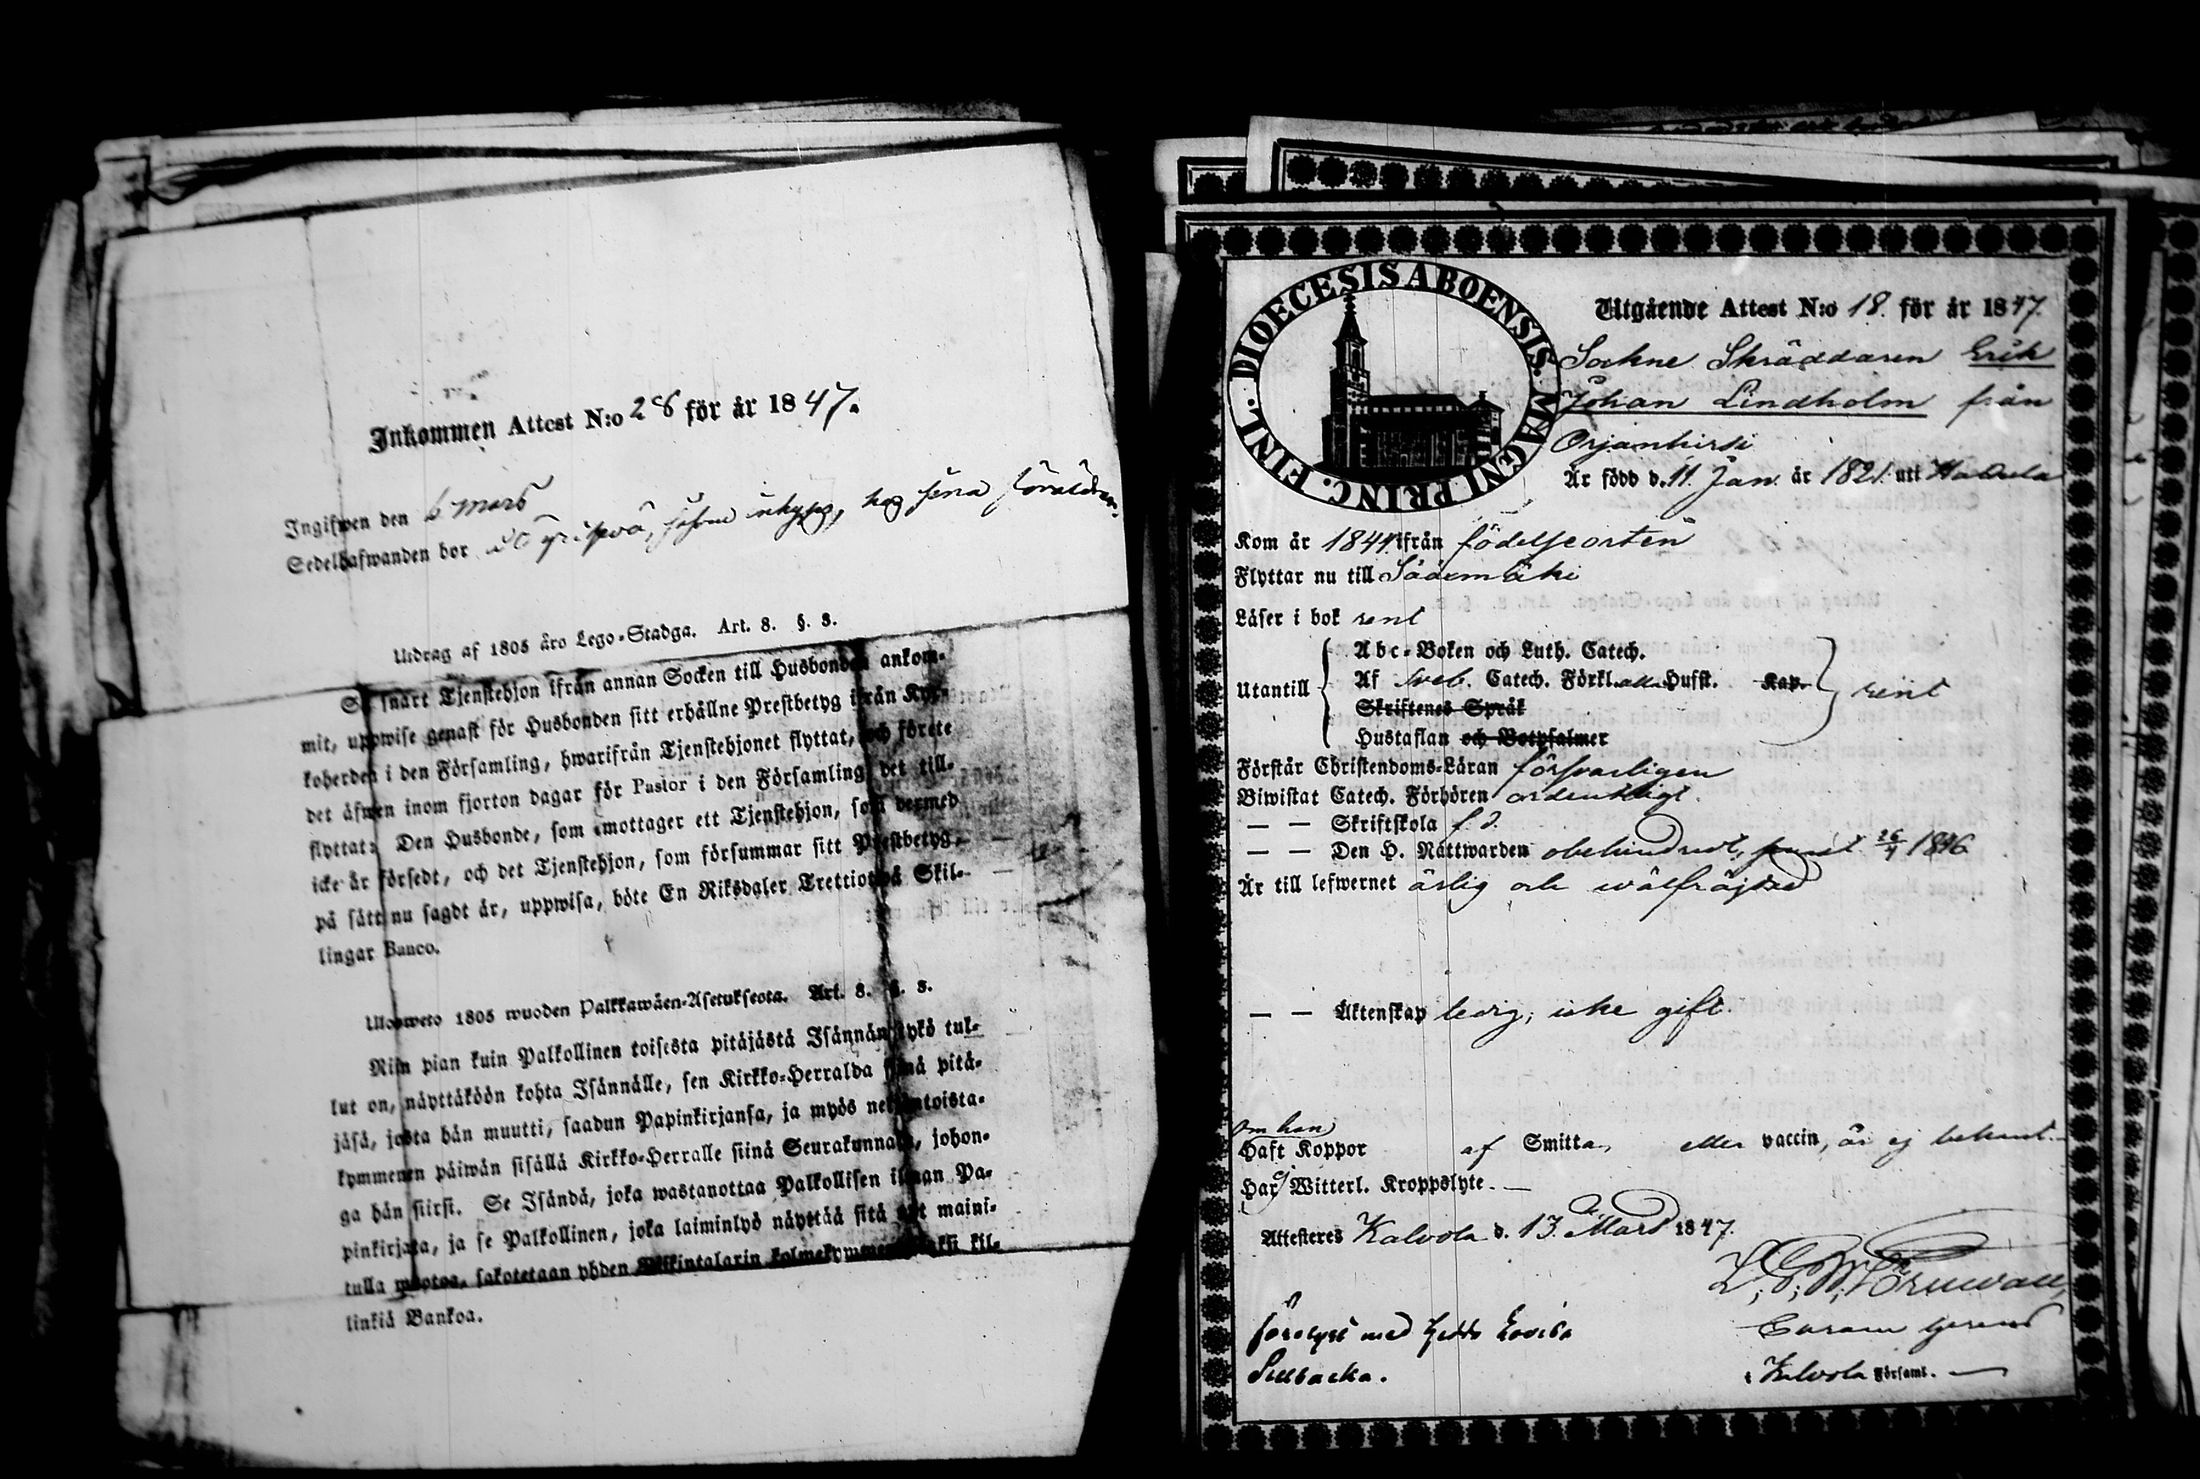 Inkommen Attest N:o 28 för år 1847.
Ingifwen den 6 Mars
Sedelhafwanden bor sina föräldrar.
Utdrag af 1805 års Lego-Stadga. Art. 8. §. 3.
Så snart Tjenstehjon ifrån annan Socken till Husbonden ankom-
mit, uppwise genast för Husbonden sitt erhållne Prestbetyg ifrån Kyr-
koherden i den Församling, hwarifrån Tjenstehjonet flyttat, och förete
det äfwen inom fjorton dagar för Pastor i den Församling det till-
flyttat. Den Husbonde, som emottager ett Tjenstehjon, som dermed
icke är försedt, och det Tjenstehjon, som försummar sitt Prestbetyg,
på sätt nu sagdt är, uppwisa, böte En Riksdaler Trettiotwå Skil-
lingar Banco.
Ulosweto 1805 wuoden Palkkawäen-Asetuksesta. Art. 8. §. 3.
Niin pian kuin Palkollinen toisesta pitäjästä Isännän tykö tul-
lut on, näyttäköön kohta Isännälle, sen Kirkko-Herralda siinä pitä-
jäsä, josta hän muutti, saadun Papinkirjansa, ja myös neljäntoista-
kymmenen päiwän sisällä Kirkko-Herralle siinä Seurakunnasa, johon-
ga hän siirsi. Se Isändä, joka wastanottaa Palkollisen ilman Pa-
pinkirjata, ja se Palkollinen, joka laiminlyö näyttää sitä nyt maini-
tulla muotoa, sakotetaan yhden Riikintalarin kolmekymmentä kaksi kil-
linkiä Bankoa.
DIOECESIS ABOENSIS. MAGNI PRINC. FINL.
Utgående Attest N:o 18. för år 1847.
Sockne Skräddaren Erik
Johan Lindholm från
Orjanhirsi
Är född d. 11 Jan. år 1821. uti Kalvola
Kom år 1844. ifrån födelseorten
Flyttar nu till Sääxmäki
Läser i bok rent
Utantill
Abc-Boken och Luth. Catech.
Af Sveb. Catech. Förkl. Hufst. Kap.
Skriftenes Språk
Hustaflan och Botpsalmer
rent
Förstår Christendoms-Läran försvarligen
Biwistat Catech. Förhören ordentligt.
— — Skriftskola f. d.
— — Den H. Nattwarden obehindrat, 1846
Är till lefwernet ärlig och wälfräjdad
— — Äktenskap ledig, icke gift.
Om han
Haft Koppor af Smitta, eller vaccin, är ej bekant.
Har ej Witterl. Kroppslyte. —
Attesteres Kalvola d. 13 Mars 1847.
i Kalvola Församl. —
förelyst med Hedda Lovisa
Sillbacka.